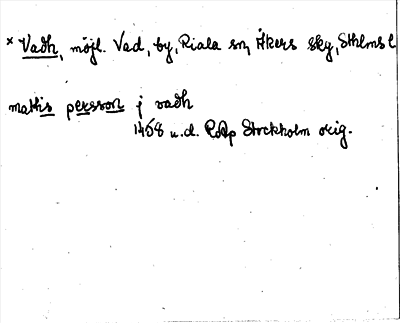 × Vadh, möjl. Vad, by, Riala sn, Åkers sky, Sthlms l
mathis persson j vadh
1458 u.d. RAp Stockholm orig.